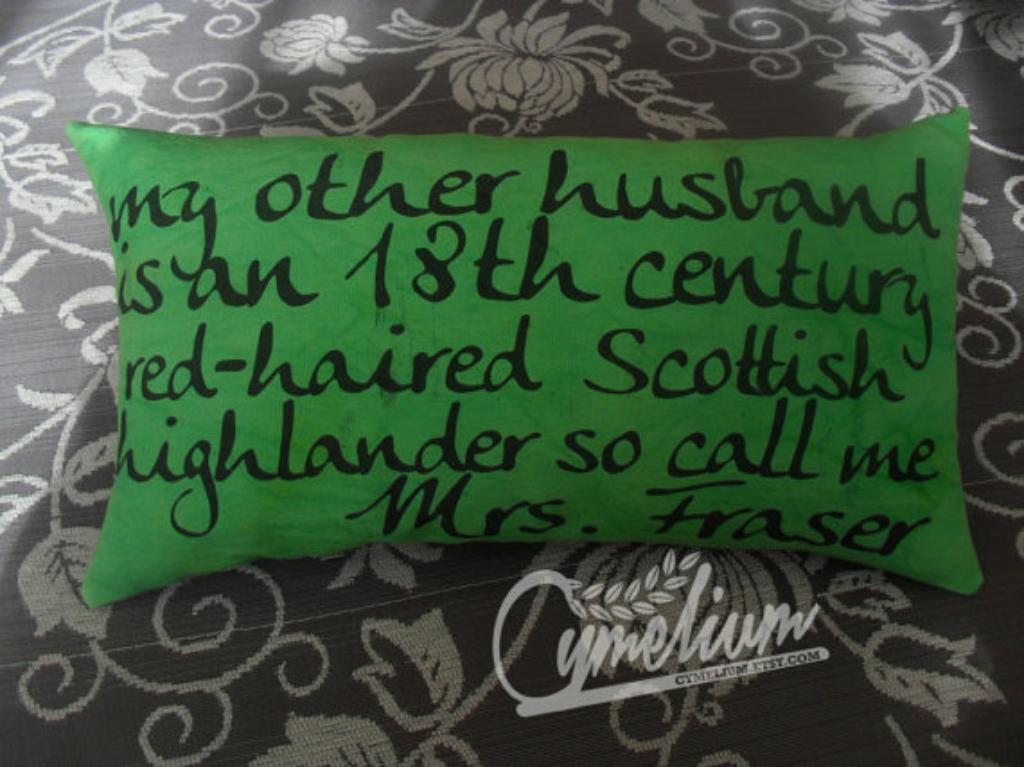 my other husband
is an 18th century
red-haired Scottish
highlander so call me
Mrs. Fraser
Cymelium
CYMELIUM.ETSY.COM